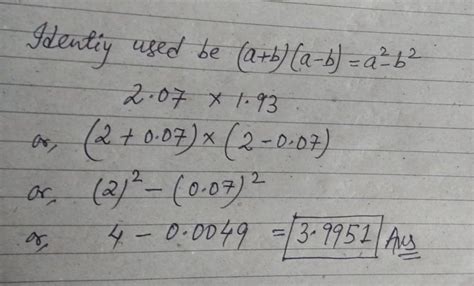 Identiy used be (a+b)(a-b)=a²-b²
2.07 × 1.93
or, (2+0.07)×(2-0.07)
or, (2)²-(0.07)²
or, 4-0.0049 = 3.9951 Ans